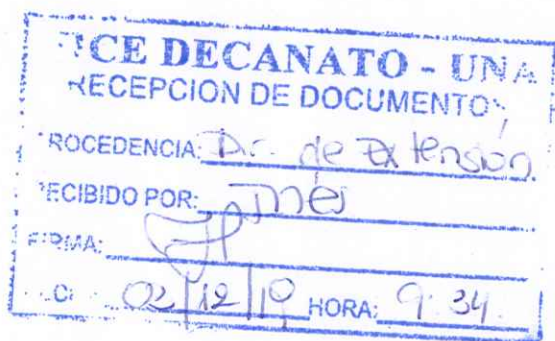 ICE DECANATO - UNA
RECEPCION DE DOCUMENTOS
ROCEDENCIA: Dir. de Extensión
ECIBIDO POR: Inés
FIRMA:
02/12/19 HORA: 9:34